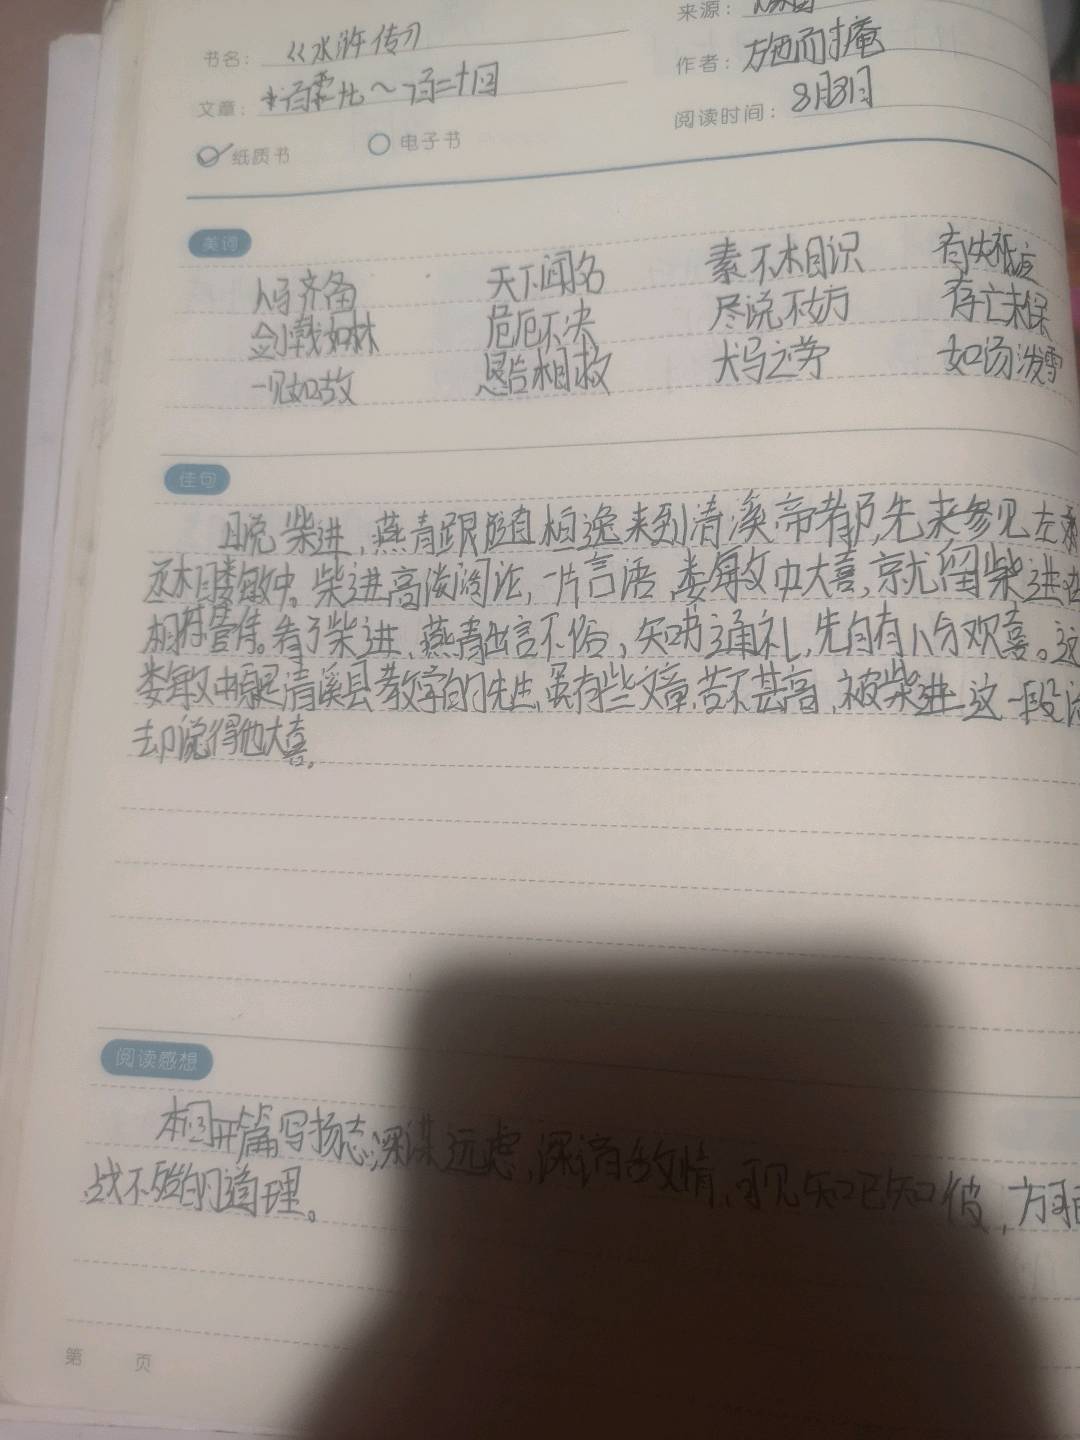 书名：《水浒传》 来源：
文章： ～一百二十回 作者：施耐庵
纸质书 电子书 阅读时间：8月31日
美词
人马齐备 天下闻名 素不相识 有失祗应
剑戟如林 危厄不决 尽说不妨 存亡未保
一见如故 恳告相救 犬马之劳 如汤泼雪
佳句
且说柴进，燕青跟随柏逸来到清溪帝都，先来参见左
丞相娄敏中。柴进高谈阔论，一片言语，娄敏中大喜，就留柴进
相府管待。看了柴进、燕青出言不俗，知书通礼，先自有八分欢喜。这
娄敏中原是清溪县教学的先生，虽有些文章，苦不甚高，被柴进这一段话
却说得他大喜。
阅读感想
本回开篇写扬志深谋远虑，深谙敌情，可见知己知彼，方可百
战不殆的道理。
第 页